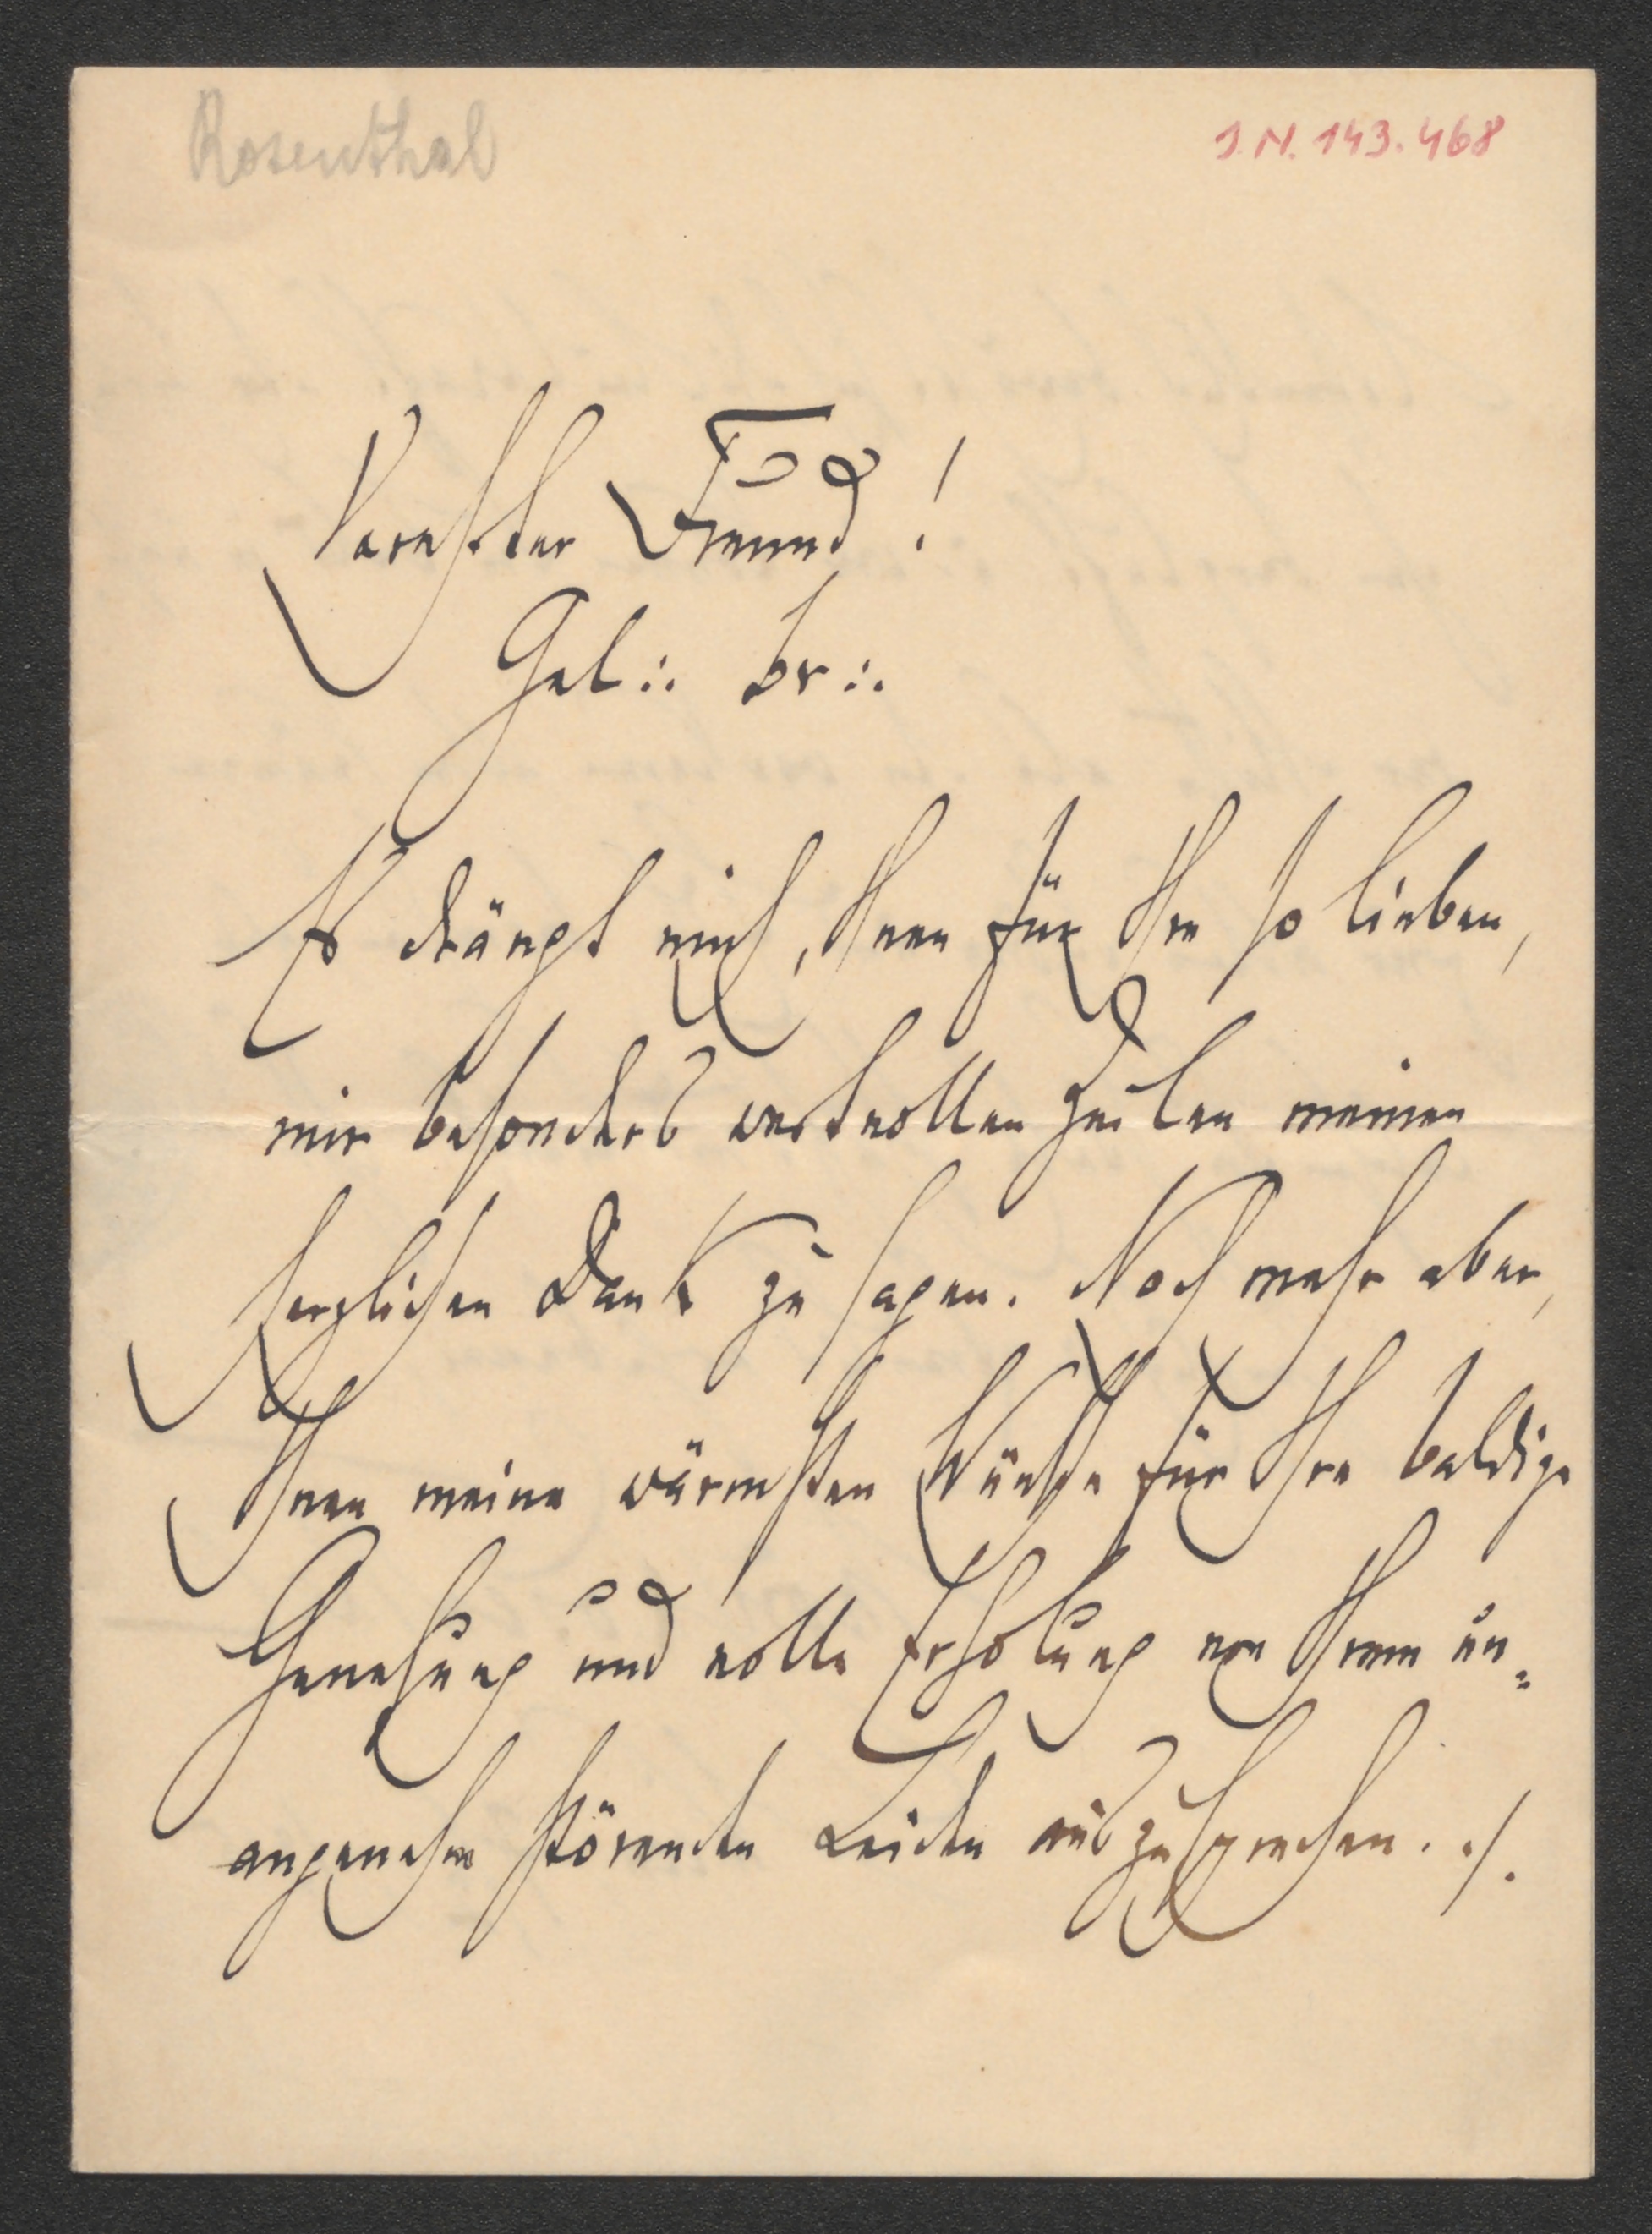 Rosenthal
I.N. 143.468
Verehrter Freund!
Gel∴ br∴
Es drängt mich, Ihnen für Ihre so lieben,
mir besonders wertvollen Zeilen meinen
herzlichen Dank zu sagen. Noch mehr aber,
Ihnen meine wärmsten Wünsche für Ihre baldige
Genesung und volle Erholung von Ihrem un=
angenehm störenden Leiden auszusprechen. ./.